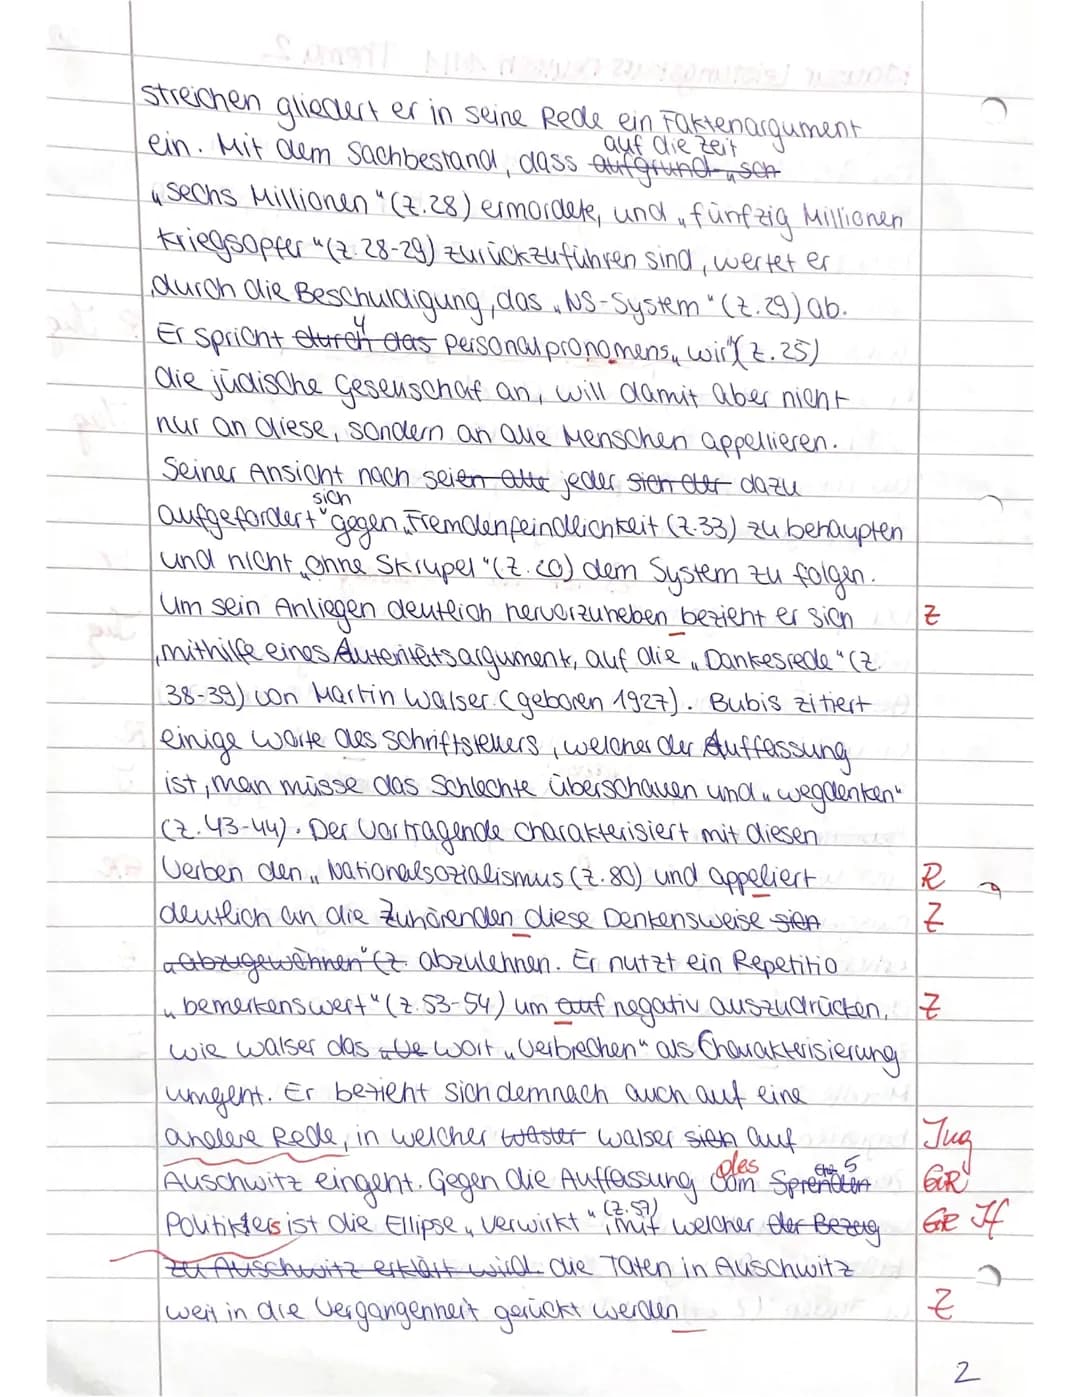 streichen gliedert er in seine Rede ein Faktenargument
auf die Zeit
ein. Mit dem Sachbestand, dass aufgrund „sch
„sechs Millionen" (Z.28) ermordete, und „fünfzig Millionen
Kriegsopfer" (Z. 28-29) zurückzuführen sind, wertet er
durch die Beschuldigung, das „NS-System" (Z.29) ab.
4
Er spricht durch das Personalpronomens „wir" (Z.25)
die jüdische Gesellschaf an, will damit aber nicht
nur an diese, sondern an alle Menschen appellieren.
Seiner Ansicht nach seien alle jeder sich der dazu
sich
aufgefordert gegen „Fremdenfeindlichkeit (Z.33) zu behaupten
und nicht „ohne Skrupel" (Z.20) dem System zu folgen.
Um sein Anliegen deutlich hervorzuheben bezieht er sich Z
mithilfe eines Autoritätsargument, auf die „Dankesrede" (Z.
38-39) von Martin Walser (geboren 1927). Bubis zitiert
einige Worte des Schriftstellers, welcher der Auffassung
ist, man müsse das Schlechte überschauen und „wegdenken"
(Z.43-44). Der Vortragende charakterisiert mit diesen
Verben den „Nationalsozialismus (Z.80) und appeliert R
deutlich an die Zuhörenden diese Denkensweise sich Z
„abzugewöhnen" (Z. abzulehnen. Er nutzt ein Repetitio
„bemerkenswert" (Z.53-54) um auf negativ auszudrücken, Z
wie Walser das Wort „Verbrechen" als Charakterisierung
umgeht. Er bezieht sich demnach auch auf eine
andere Rede, in welcher Walser sich auf Zug
des 5
Auschwitz eingeht. Gegen die Auffassung vom GR
(Z.57)
Politikers ist die Ellipse „verwirkt", mit welcher der Bezug GR If
zu Auschwitz erklärt wird die Taten in Auschwitz
weit in die Vergangenheit gerückt werden Z
2